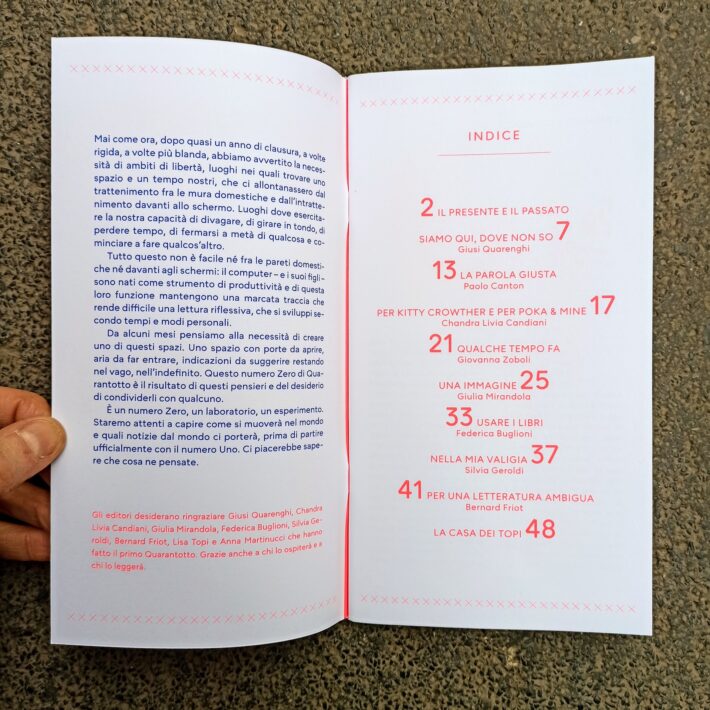 Mai come ora, dopo quasi un anno di clausura, a volte
rigida, a volte più blanda, abbiamo avvertito la neces-
sità di ambiti di libertà, luoghi nei quali trovare uno
spazio e un tempo nostri, che ci allontanassero dal
trattenimento fra le mura domestiche e dall'intratte-
nimento davanti allo schermo. Luoghi dove esercita-
re la nostra capacità di divagare, di girare in tondo, di
perdere tempo, di fermarsi a metà di qualcosa e co-
minciare a fare qualcos'altro.
Tutto questo non è facile né fra le pareti domesti-
che né davanti agli schermi: il computer – e i suoi figli –
sono nati come strumento di produttività e di questa
loro funzione mantengono una marcata traccia che
rende difficile una lettura riflessiva, che si sviluppi se-
condo tempi e modi personali.
Da alcuni mesi pensiamo alla necessità di creare
uno di questi spazi. Uno spazio con porte da aprire,
aria da far entrare, indicazioni da suggerire restando
nel vago, nell'indefinito. Questo numero Zero di Qua-
rantotto è il risultato di questi pensieri e del desiderio
di condividerli con qualcuno.
È un numero Zero, un laboratorio, un esperimento.
Staremo attenti a capire come si muoverà nel mondo
e quali notizie dal mondo ci porterà, prima di partire
ufficialmente con il numero Uno. Ci piacerebbe sape-
re che cosa ne pensate.
Gli editori desiderano ringraziare Giusi Quarenghi, Chandra
Livia Candiani, Giulia Mirandola, Federica Buglioni, Silvia Ge-
roldi, Bernard Friot, Lisa Topi e Anna Martinucci che hanno
fatto il primo Quarantotto. Grazie anche a chi lo ospiterà e a
chi lo leggerà.
INDICE
2 IL PRESENTE E IL PASSATO
SIAMO QUI, DOVE NON SO 7
Giusi Quarenghi
13 LA PAROLA GIUSTA
Paolo Canton
PER KITTY CROWTHER E PER POKA & MINE 17
Chandra Livia Candiani
21 QUALCHE TEMPO FA
Giovanna Zoboli
UNA IMMAGINE 25
Giulia Mirandola
33 USARE I LIBRI
Federica Buglioni
NELLA MIA VALIGIA 37
Silvia Geroldi
41 PER UNA LETTERATURA AMBIGUA
Bernard Friot
LA CASA DEI TOPI 48